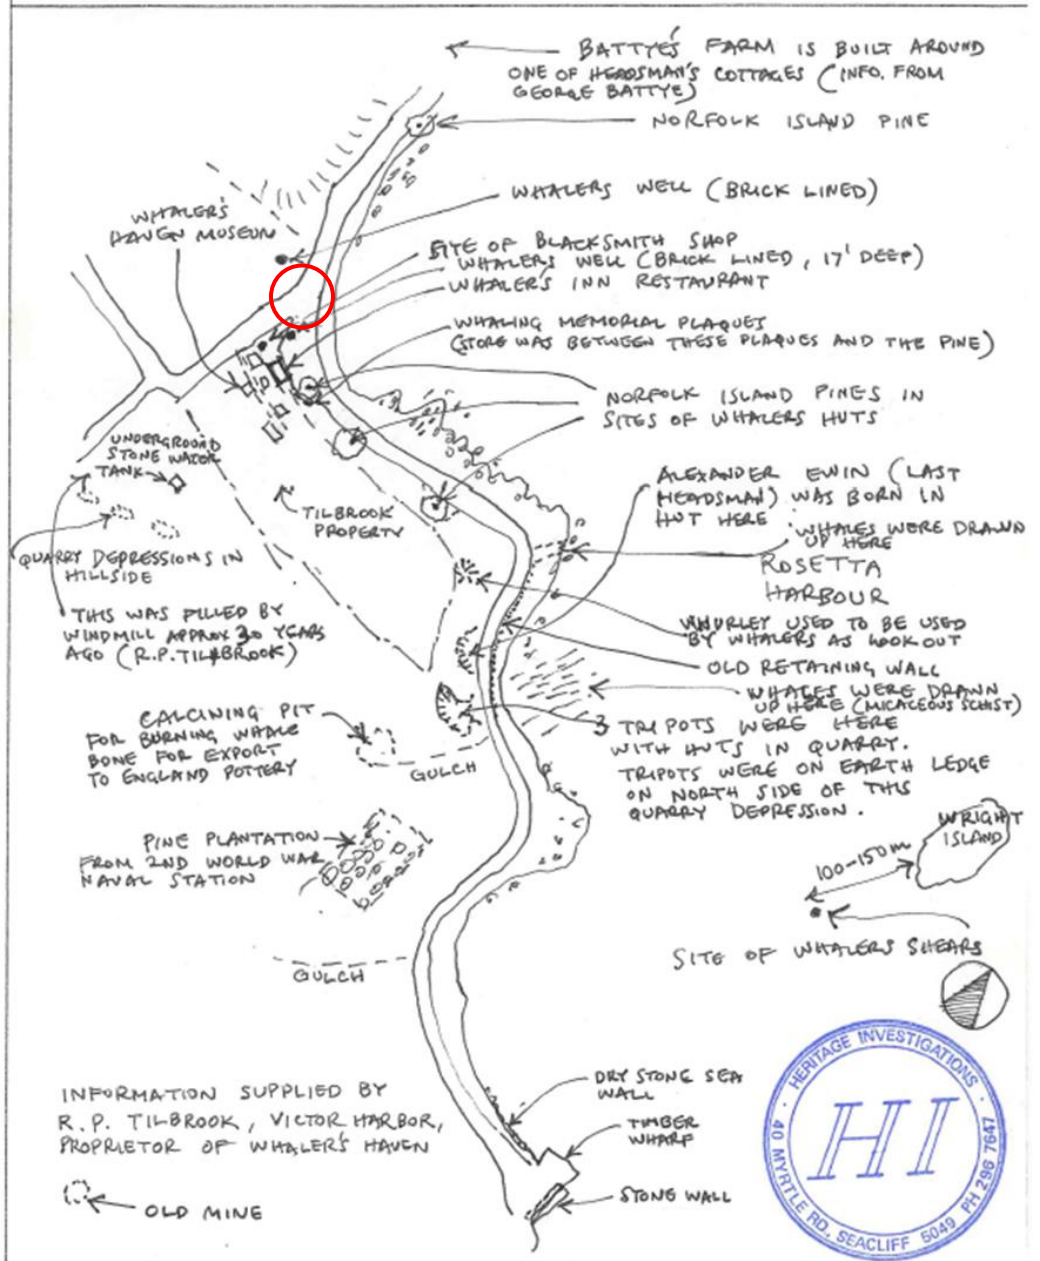 BATTYE'S FARM IS BUILT AROUND
ONE OF HEADSMAN'S COTTAGES (INFO. FROM
GEORGE BATTYE)
NORFOLK ISLAND PINE
WHALERS WELL (BRICK LINED)
WHALER'S
HAVEN MUSEUM
SITE OF BLACKSMITH SHOP
WHALERS WELL (BRICK LINED, 17' DEEP)
WHALER'S INN RESTAURANT
WHALING MEMORIAL PLAQUES
(STORE WAS BETWEEN THESE PLAQUES AND THE PINE)
NORFOLK ISLAND PINES IN
SITES OF WHALERS HUTS
UNDERGROUND
STONE WATER
TANK
TILBROOK
PROPERTY
ALEXANDER EWIN (LAST
HEADSMAN) WAS BORN IN
HUT HERE
WHALES WERE DRAWN
UP HERE
ROSETTA
HARBOUR
QUARRY DEPRESSIONS IN
HILLSIDE
THIS WAS FILLED BY
WINDMILL APPROX 30 YEARS
AGO (R.P. TILBROOK)
WHURLEY USED TO BE USED
BY WHALERS AS LOOKOUT
OLD RETAINING WALL
WHALES WERE DRAWN
UP HERE (MICACEOUS SCHIST)
3 TRIPOTS WERE HERE
WITH HUTS IN QUARRY.
TRIPOTS WERE ON EARTH LEDGE
ON NORTH SIDE OF THIS
QUARRY DEPRESSION.
CALCINING PIT
FOR BURNING WHALE
BONE FOR EXPORT
TO ENGLAND POTTERY
GULCH
PINE PLANTATION
FROM 2ND WORLD WAR
NAVAL STATION
WRIGHT
ISLAND
100-150m
SITE OF WHALERS SHEARS
GULCH
INFORMATION SUPPLIED BY
R. P. TILBROOK, VICTOR HARBOR,
PROPRIETOR OF WHALER'S HAVEN
OLD MINE
DRY STONE SEA
WALL
TIMBER
WHARF
STONE WALL
HERITAGE INVESTIGATIONS
HI
40 MYRTLE RD, SEACLIFF 5049 PH 296 7647